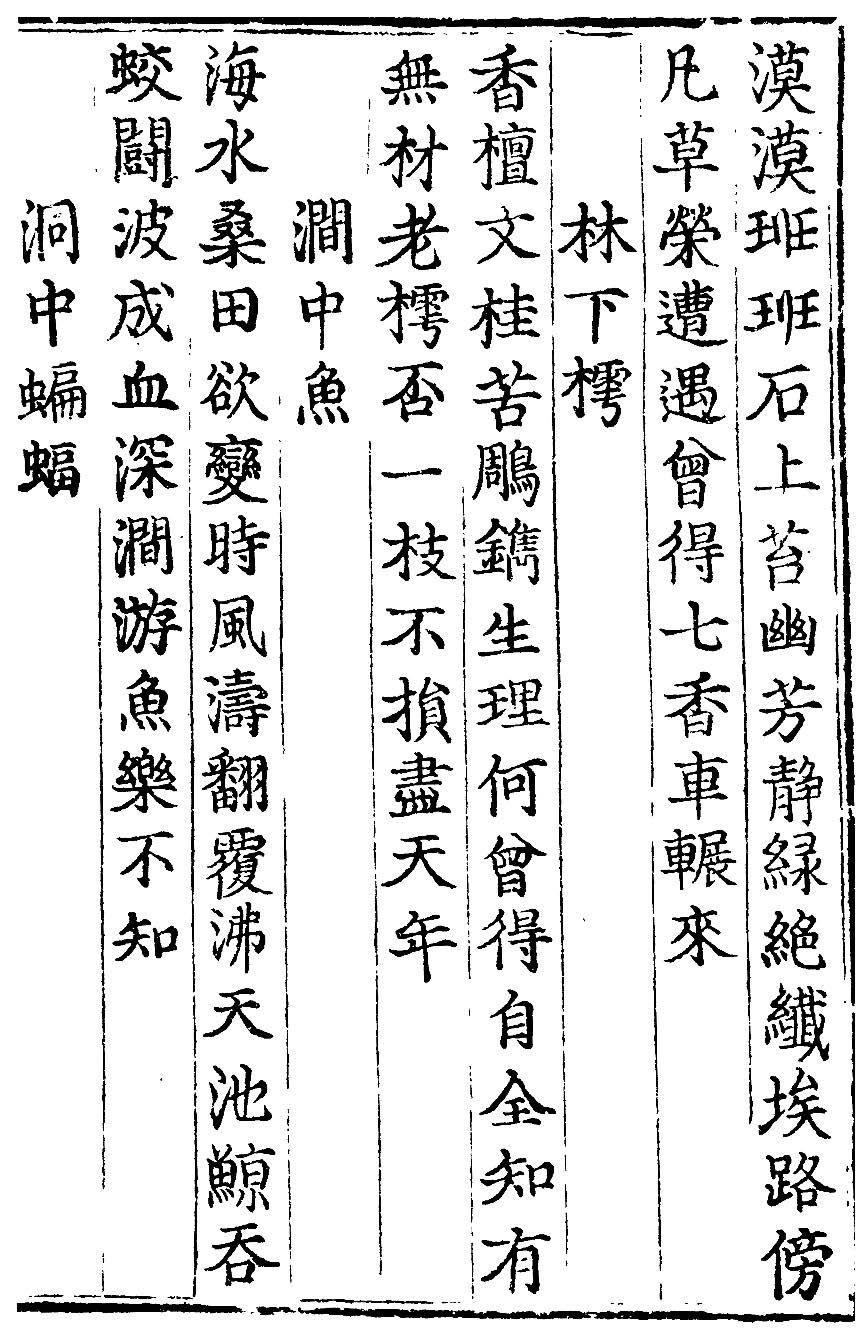 漠漠班班石上苔幽芳静緑絶纎埃路傍
凡草榮遭遇曾得七香車輾來
林下樗
香檀文桂苦雕鐫生理何曾得自全知有
無材老樗否一枝不損盡天年
澗中魚
海水桑田欲變時風濤翻覆沸天池鯨吞
蛟闘波成血深澗游魚樂不知
洞中蝙蝠